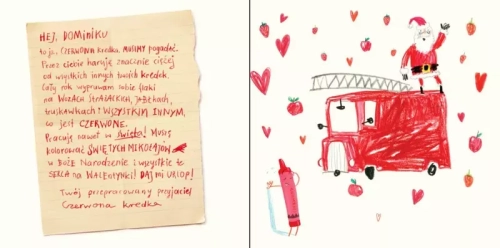 HEJ, DOMINIKU
to ja, CZERWONA kredka. MUSIMY pogadać.
Przez ciebie haruję znacznie ciężej
od wszystkich innych twoich kredek.
Cały rok wypruwam sobie flaki
na WOZACH STRAŻACKICH, JABŁKACH,
truskawkach i WSZYSTKIM INNYM,
co jest CZERWONE.
Pracuję nawet w święta! Muszę
kolorować ŚWIĘTYCH MIKOŁAJÓW
w BOŻE NARODZENIE i wszystkie te
SERCA na WALENTYNKI! DAJ MI URLOP!
Twój przepracowany przyjaciel
Czerwona kredka